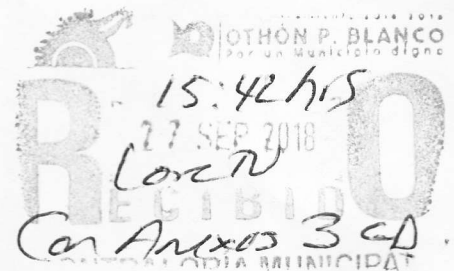 OTHÓN P. BLANCO
Por un Municipio digno
15:42 hrs
27 SEP 2018
RECIBIDO
Con Anexos 3 CD.
CONTRALORÍA MUNICIPAL